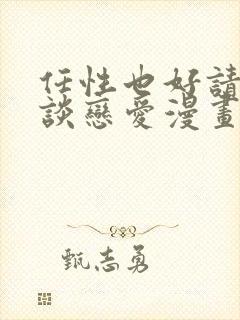 任性也好請
談戀愛漫畫
甄志勇